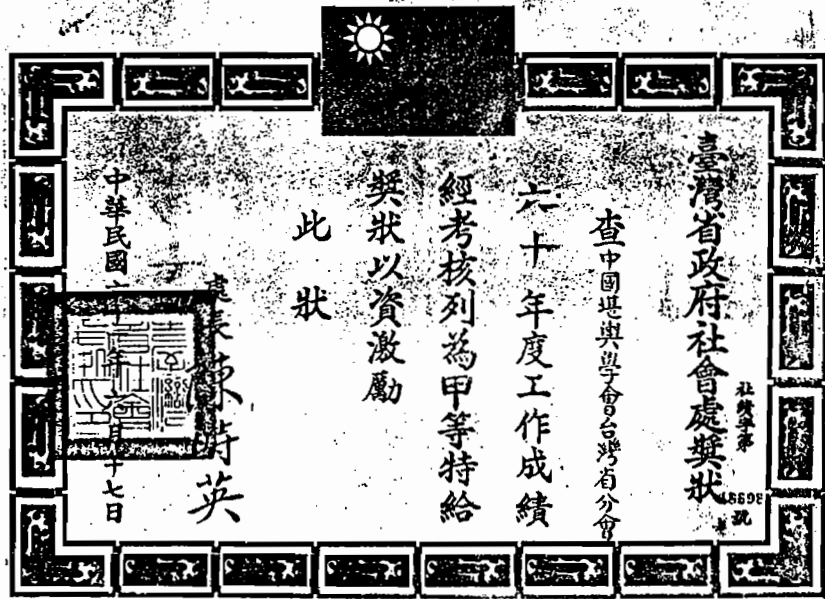 臺灣省政府社會處獎狀
社績字第
號
查中國堪輿學會台灣省分會
六十年度工作成績
經考核列為甲等特給
獎狀以資激勵
此狀
處長陳時英
中華民國六十年月十七日